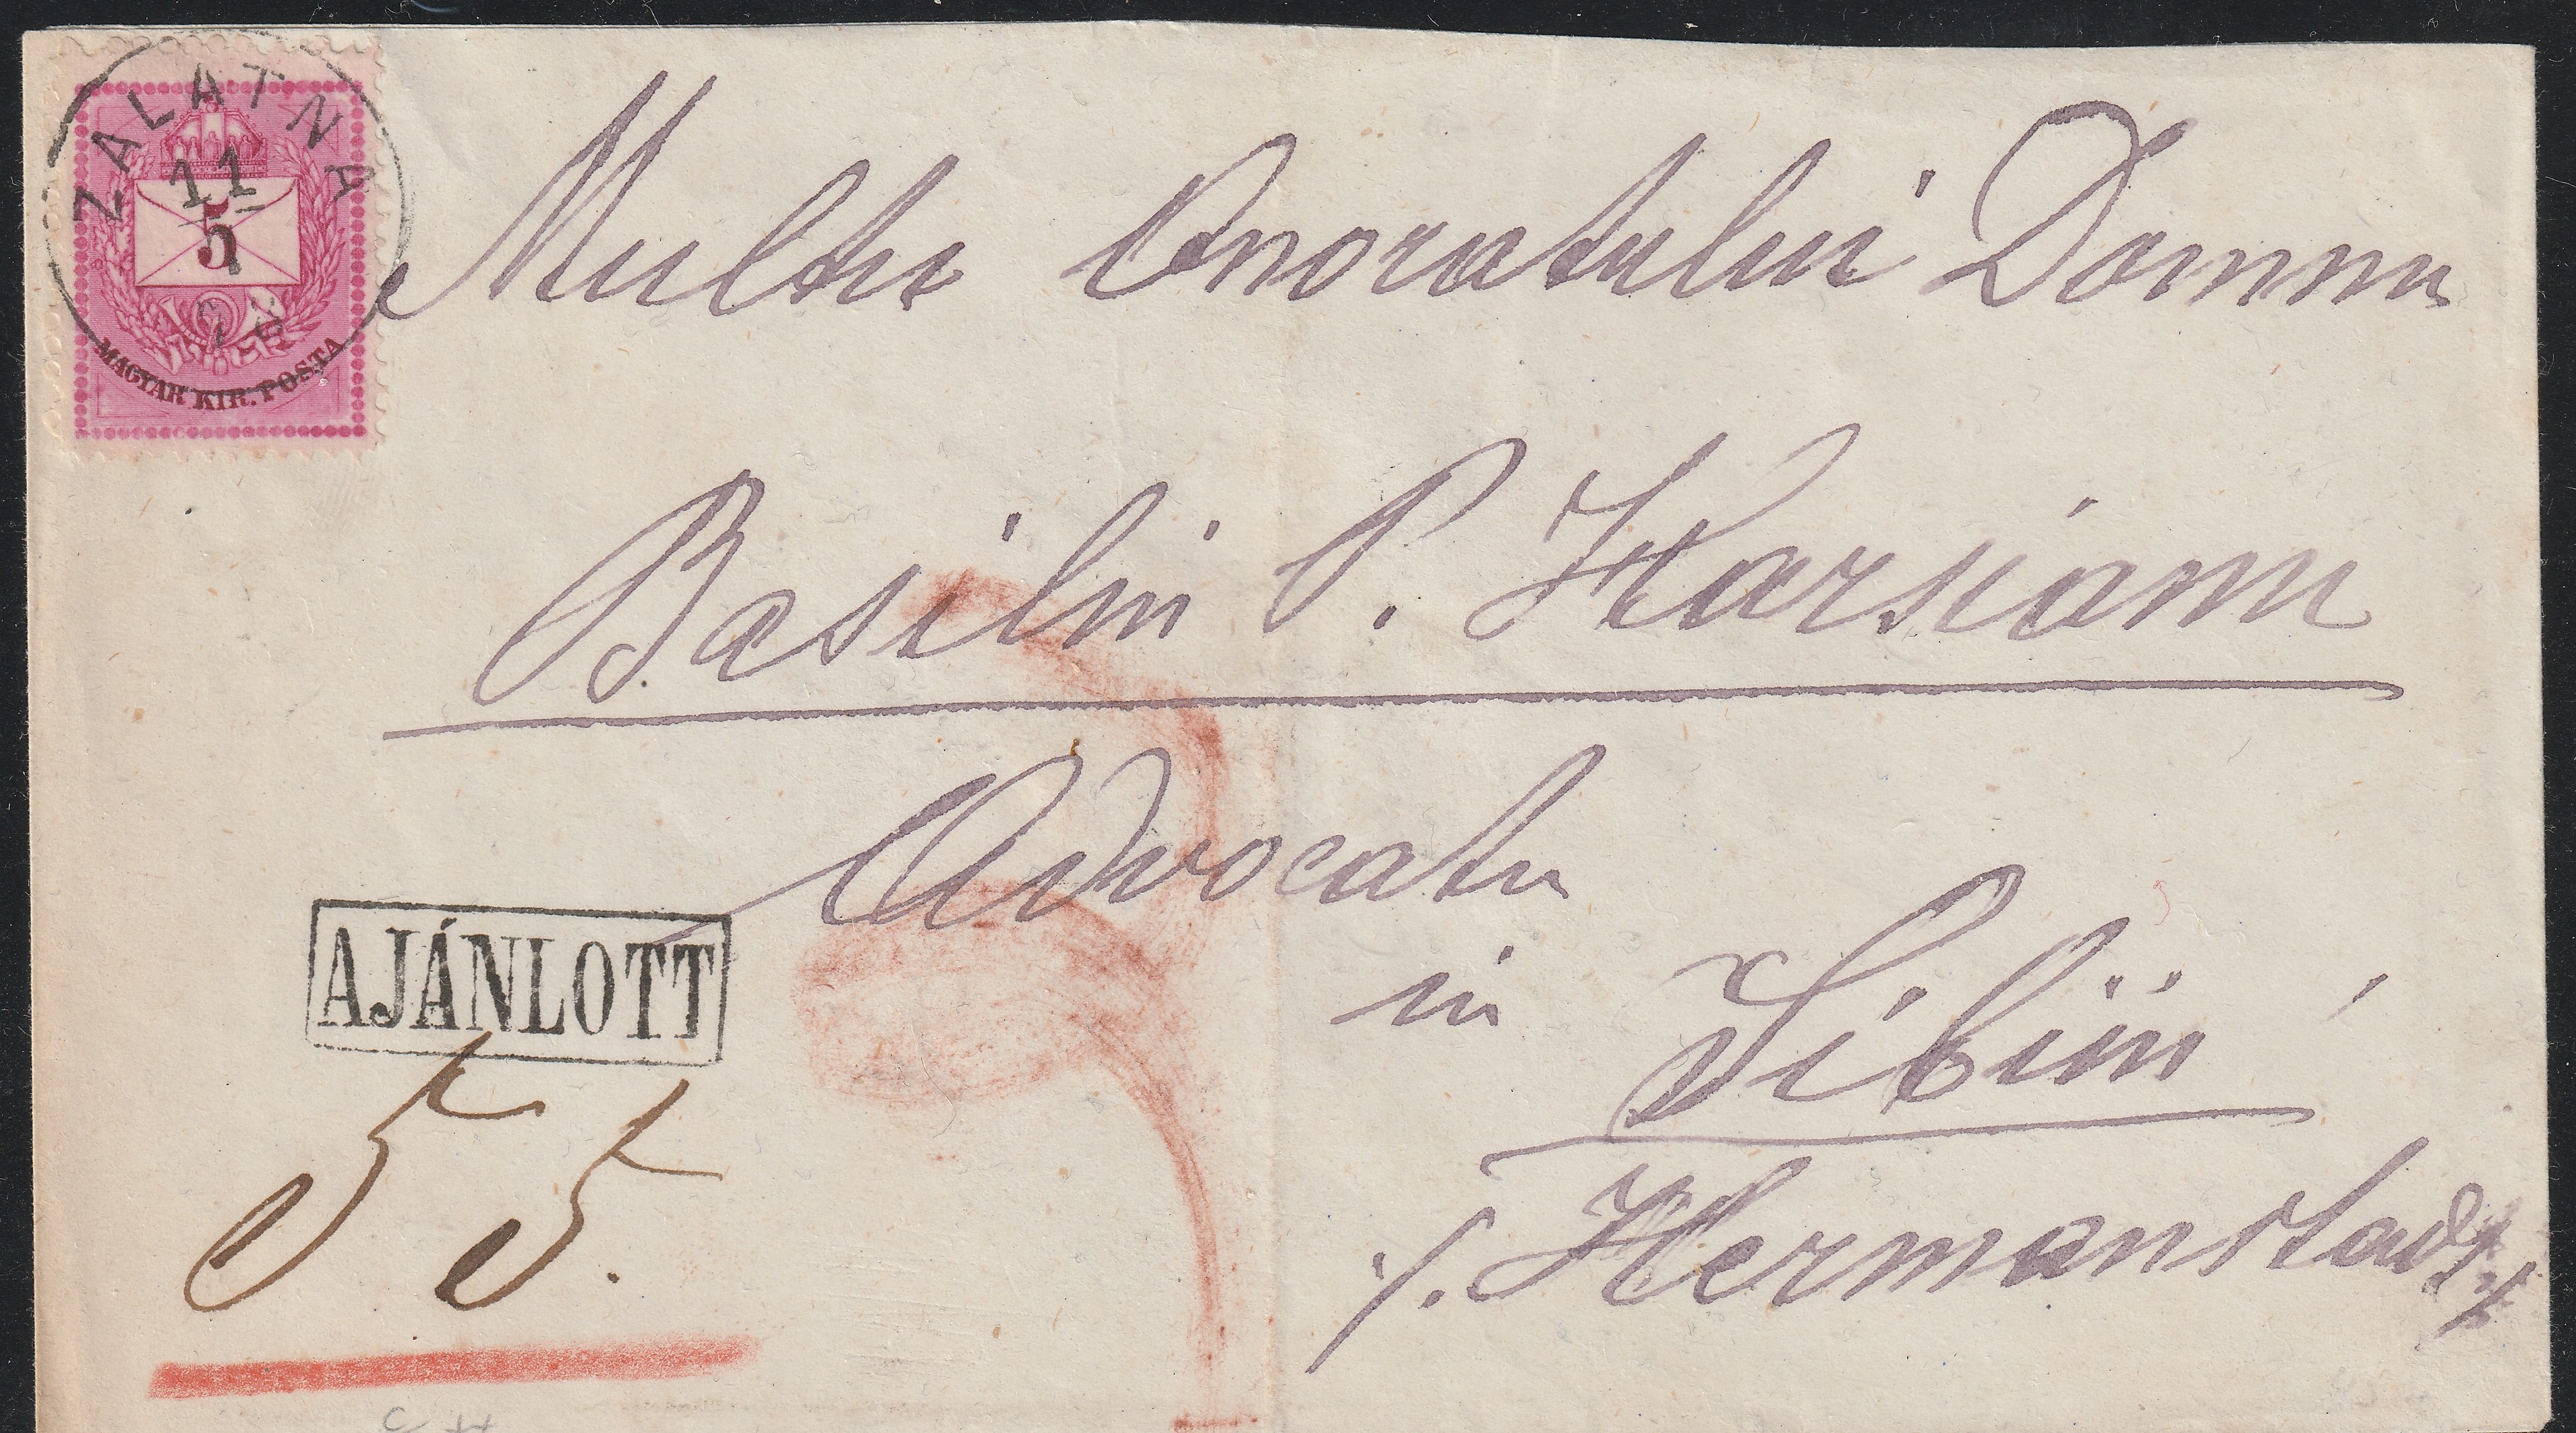 ZALATNA
11
5
MAGYAR KIR. POSTA
Multu Onoratului Domnu
Basiliu P. Harsianu
Advocatu
in Sibiiu
/. Hermanstadt ./.
AJÁNLOTT
55.